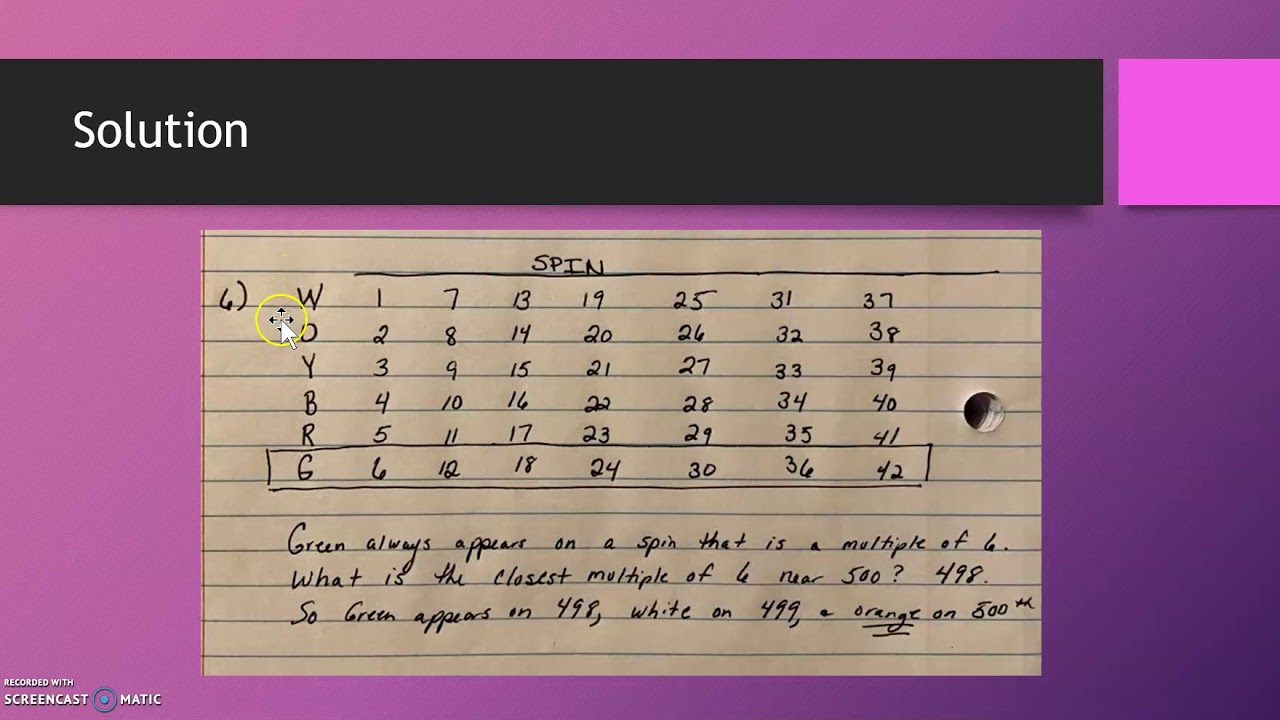 Solution
SPIN
6) W 1 7 13 19 25 31 37
O 2 8 14 20 26 32 38
Y 3 9 15 21 27 33 39
B 4 10 16 22 28 34 40
R 5 11 17 23 29 35 41
G 6 12 18 24 30 36 42
Green always appears on a spin that is a multiple of 6.
What is the closest multiple of 6 near 500? 498.
So Green appears on 498, white on 499, & orange on 500th
RECORDED WITH
SCREENCAST MATIC